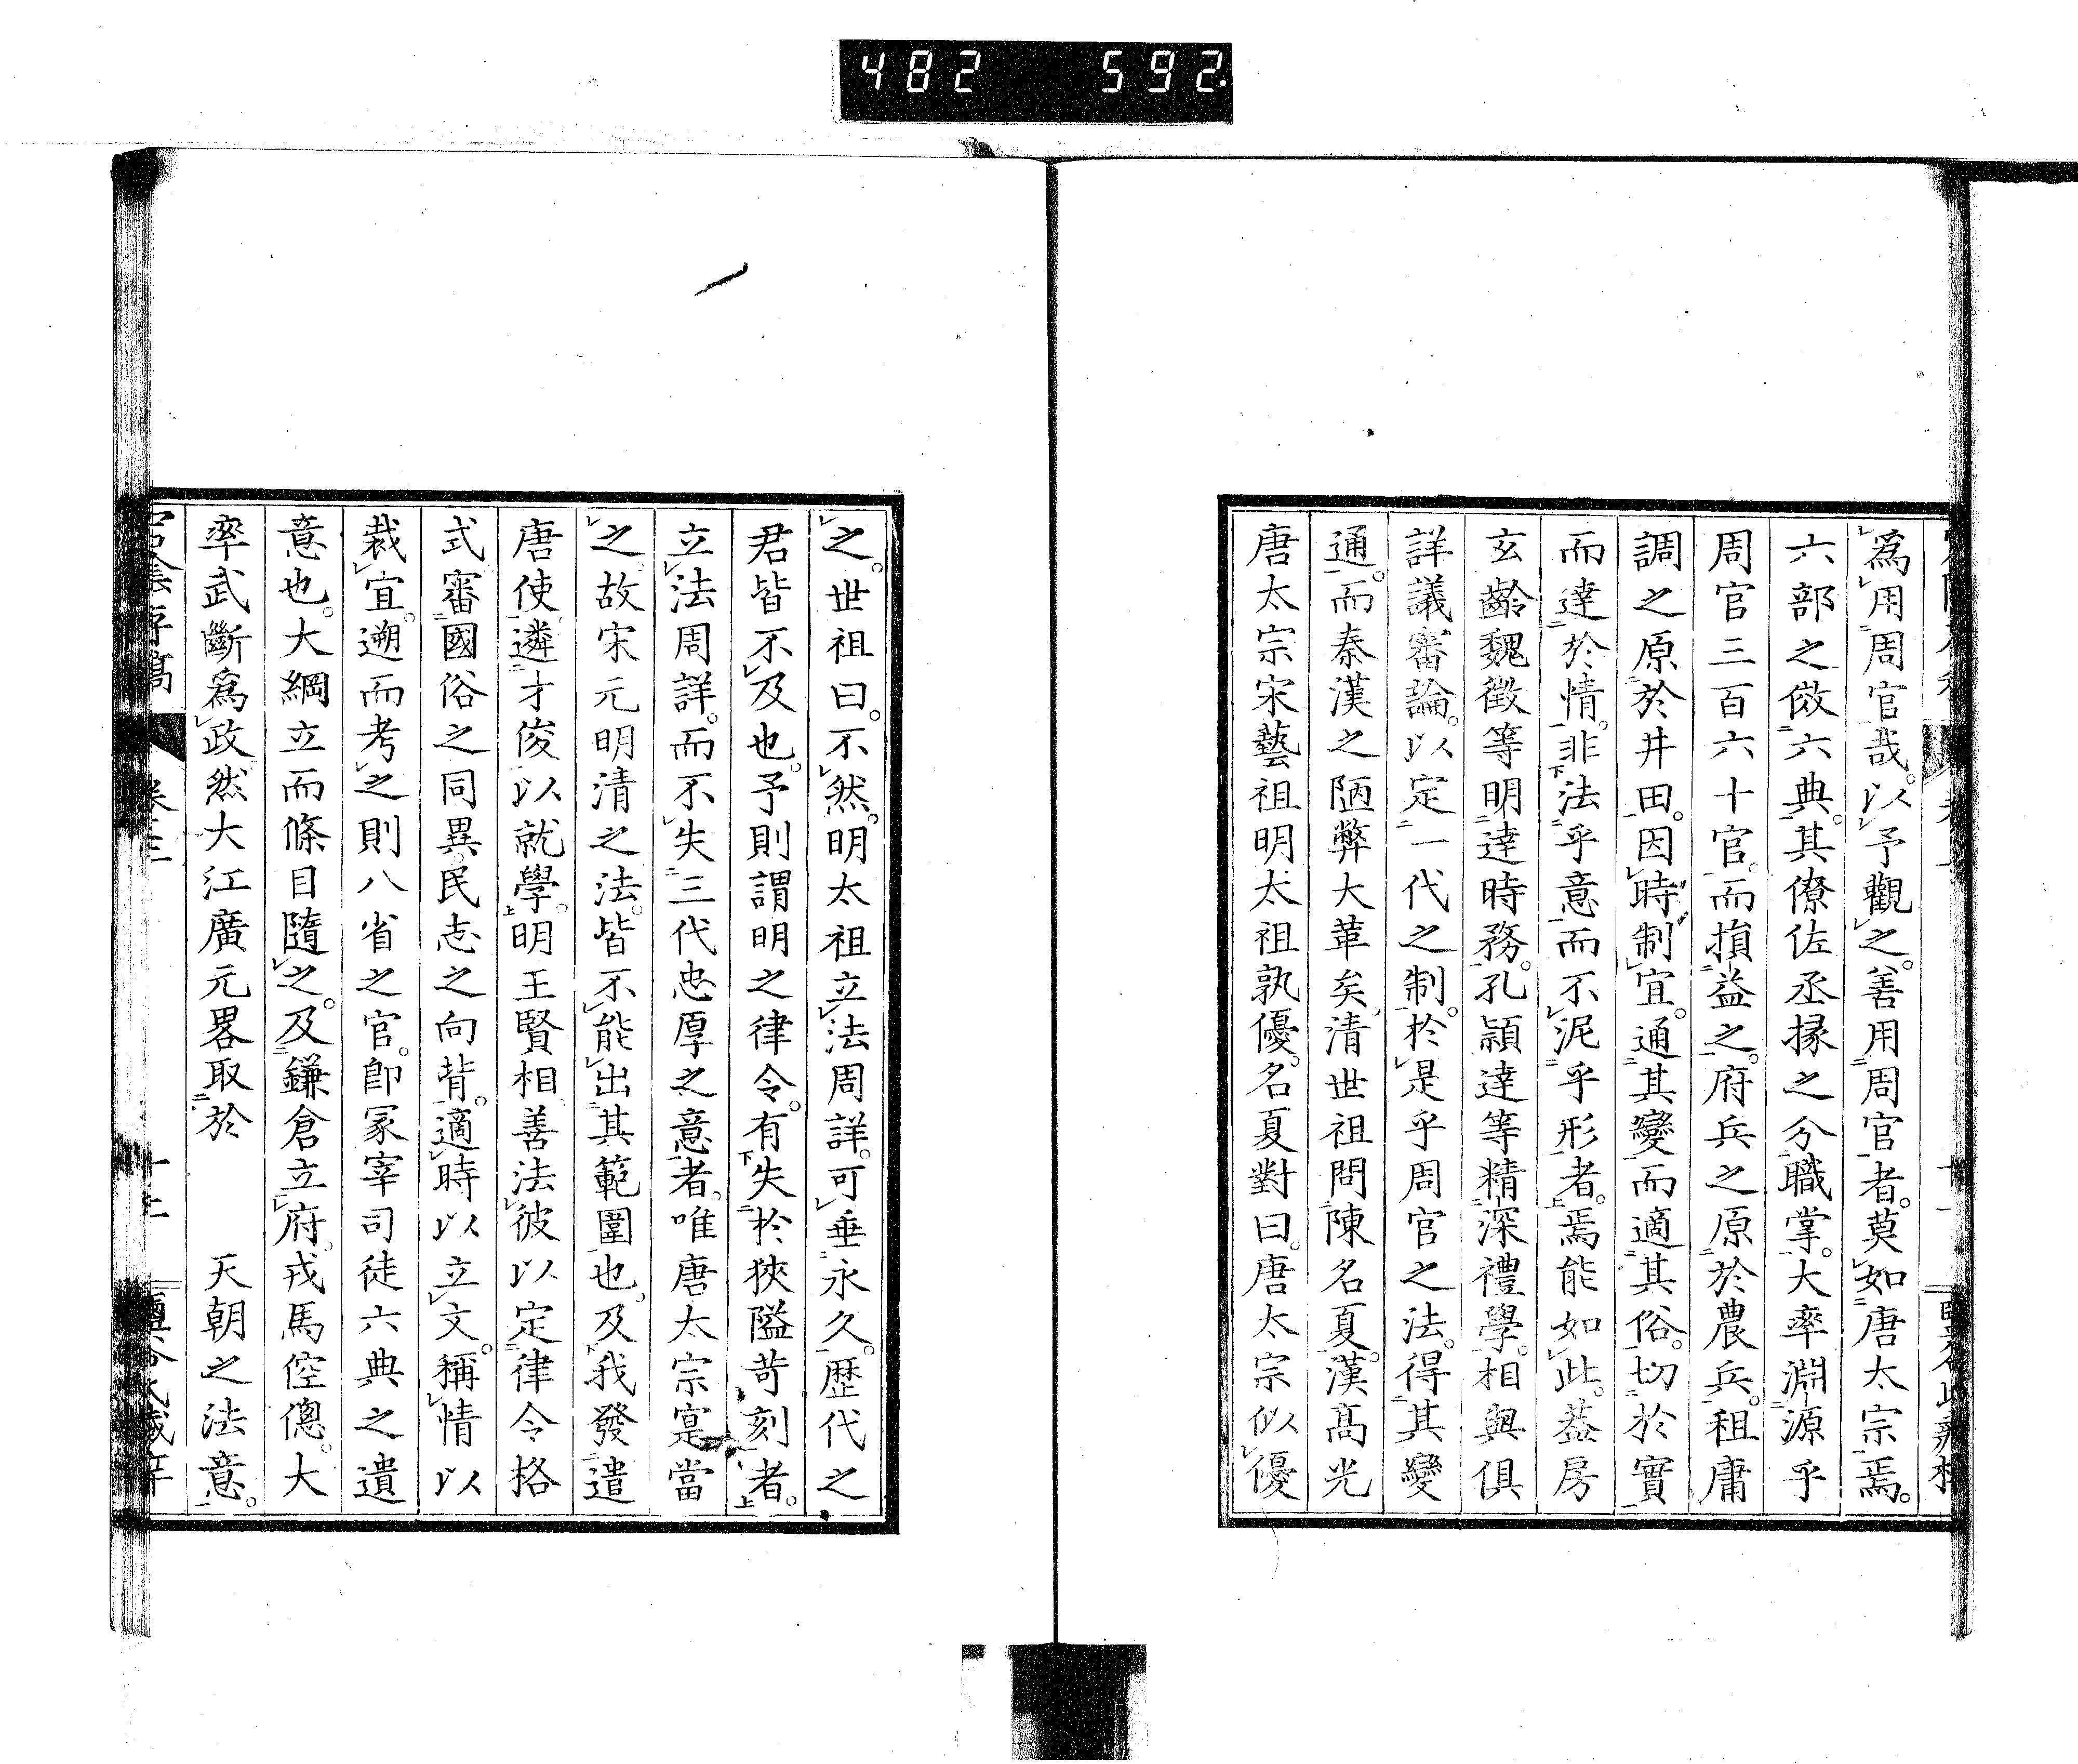 482 592.
爲用周官哉。以予觀之。善用周官者。莫如唐太宗焉。
六部之倣六典。其僚佐丞掾之分職掌。大率淵源乎
周官三百六十官。而損益之。府兵之原於農兵。租庸
調之原於井田。因時制宜。通其變而適其俗。切於實
而達於情。非法乎意而不泥乎形者。焉能如此。蓋房
玄齡魏徵等明達時務。孔頴達等精深禮學。相與俱
詳議審論。以定一代之制。於是乎周官之法。得其變
通。而秦漢之陋弊大革矣。清世祖問陳名夏。漢高光
唐太宗宋藝祖明太祖孰優。名夏對曰。唐太宗似優
之。世祖曰。不然。明太祖立法周詳。可垂永久。歷代之
君皆不及也。予則謂明之律令。有失於狹隘苛刻者。
立法周詳。而不失三代忠厚之意者。唯唐太宗寔當
之。故宋元明清之法。皆不能出其範圍也。及我發遣
唐使遴才俊以就學。明王賢相善法彼以定律令格
式審國俗之同異民志之向背。適時以立文。稱情以
裁宜。遡而考之則八省之官。卽冢宰司徒六典之遺
意也。大綱立而條目隨之。及鎌倉立府。戎馬倥傯。大
率武斷爲政然大江廣元畧取於 天朝之法意。
卷三